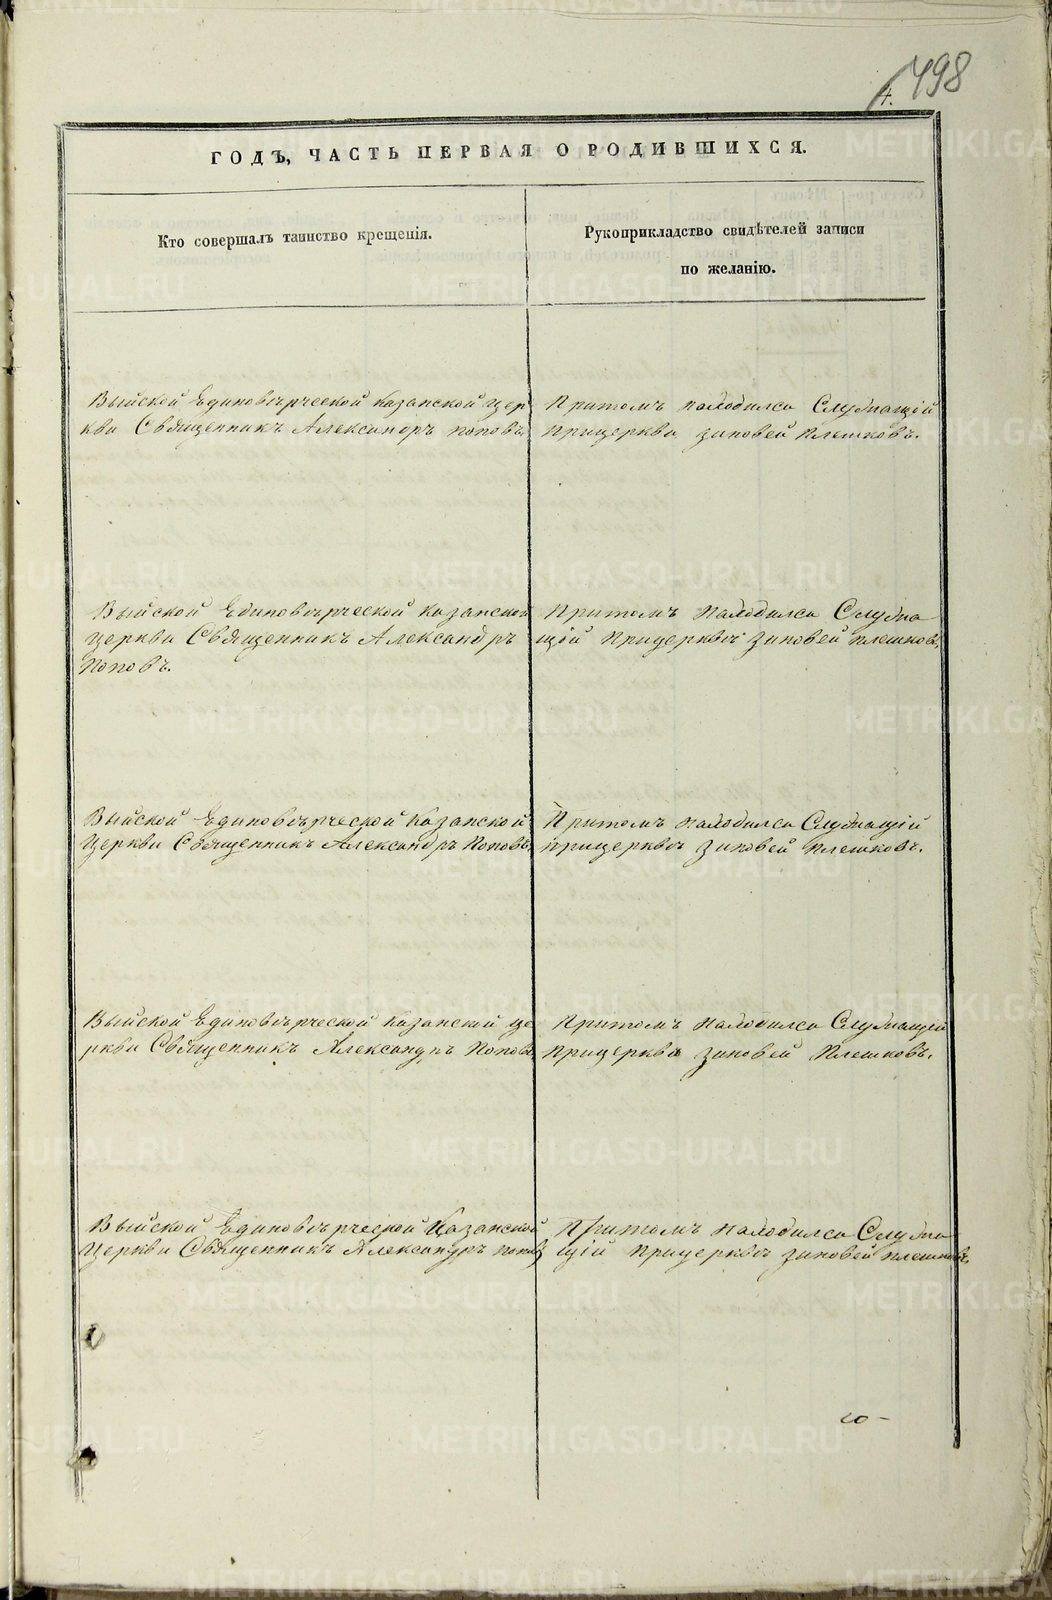 498
4.
ГОДЪ, ЧАСТЬ ПЕРВАЯ О РОДИВШИХСЯ.
Кто совершалъ таинство крещенія.
Рукоприкладство свидѣтелей записи
по желанію.
Выйской Единовѣрческой Казанской цер
кви Священникъ Александръ Поповъ,
Притомъ находился Служащій
Прицеркви Зиновей Плешковъ.
Выйской Единовѣрческой Казанской
Церкви Священникъ Александръ
Поповъ.
Притомъ Находился Служа
щій Прицерквѣ Зиновей Плешковъ,
Выйской Единовѣрческой Казанской
Церкви Священникъ Александръ Поповъ,
Притомъ находился Служащій
прицерквѣ Зиновей Плешковъ.
Выйской Единовѣрческой Казанской це
ркви Священникъ Александръ Поповъ,
Притомъ находился Служащей
Прицерквѣ Зиновей Плешковъ.
Выйской Единовѣрческой Казанской
Церкви Священникъ Александръ Поповъ
Притомъ находился Служа
щій Прицерквѣ Зиновей Плешковъ.
METRIKI.GASO-URAL.RU